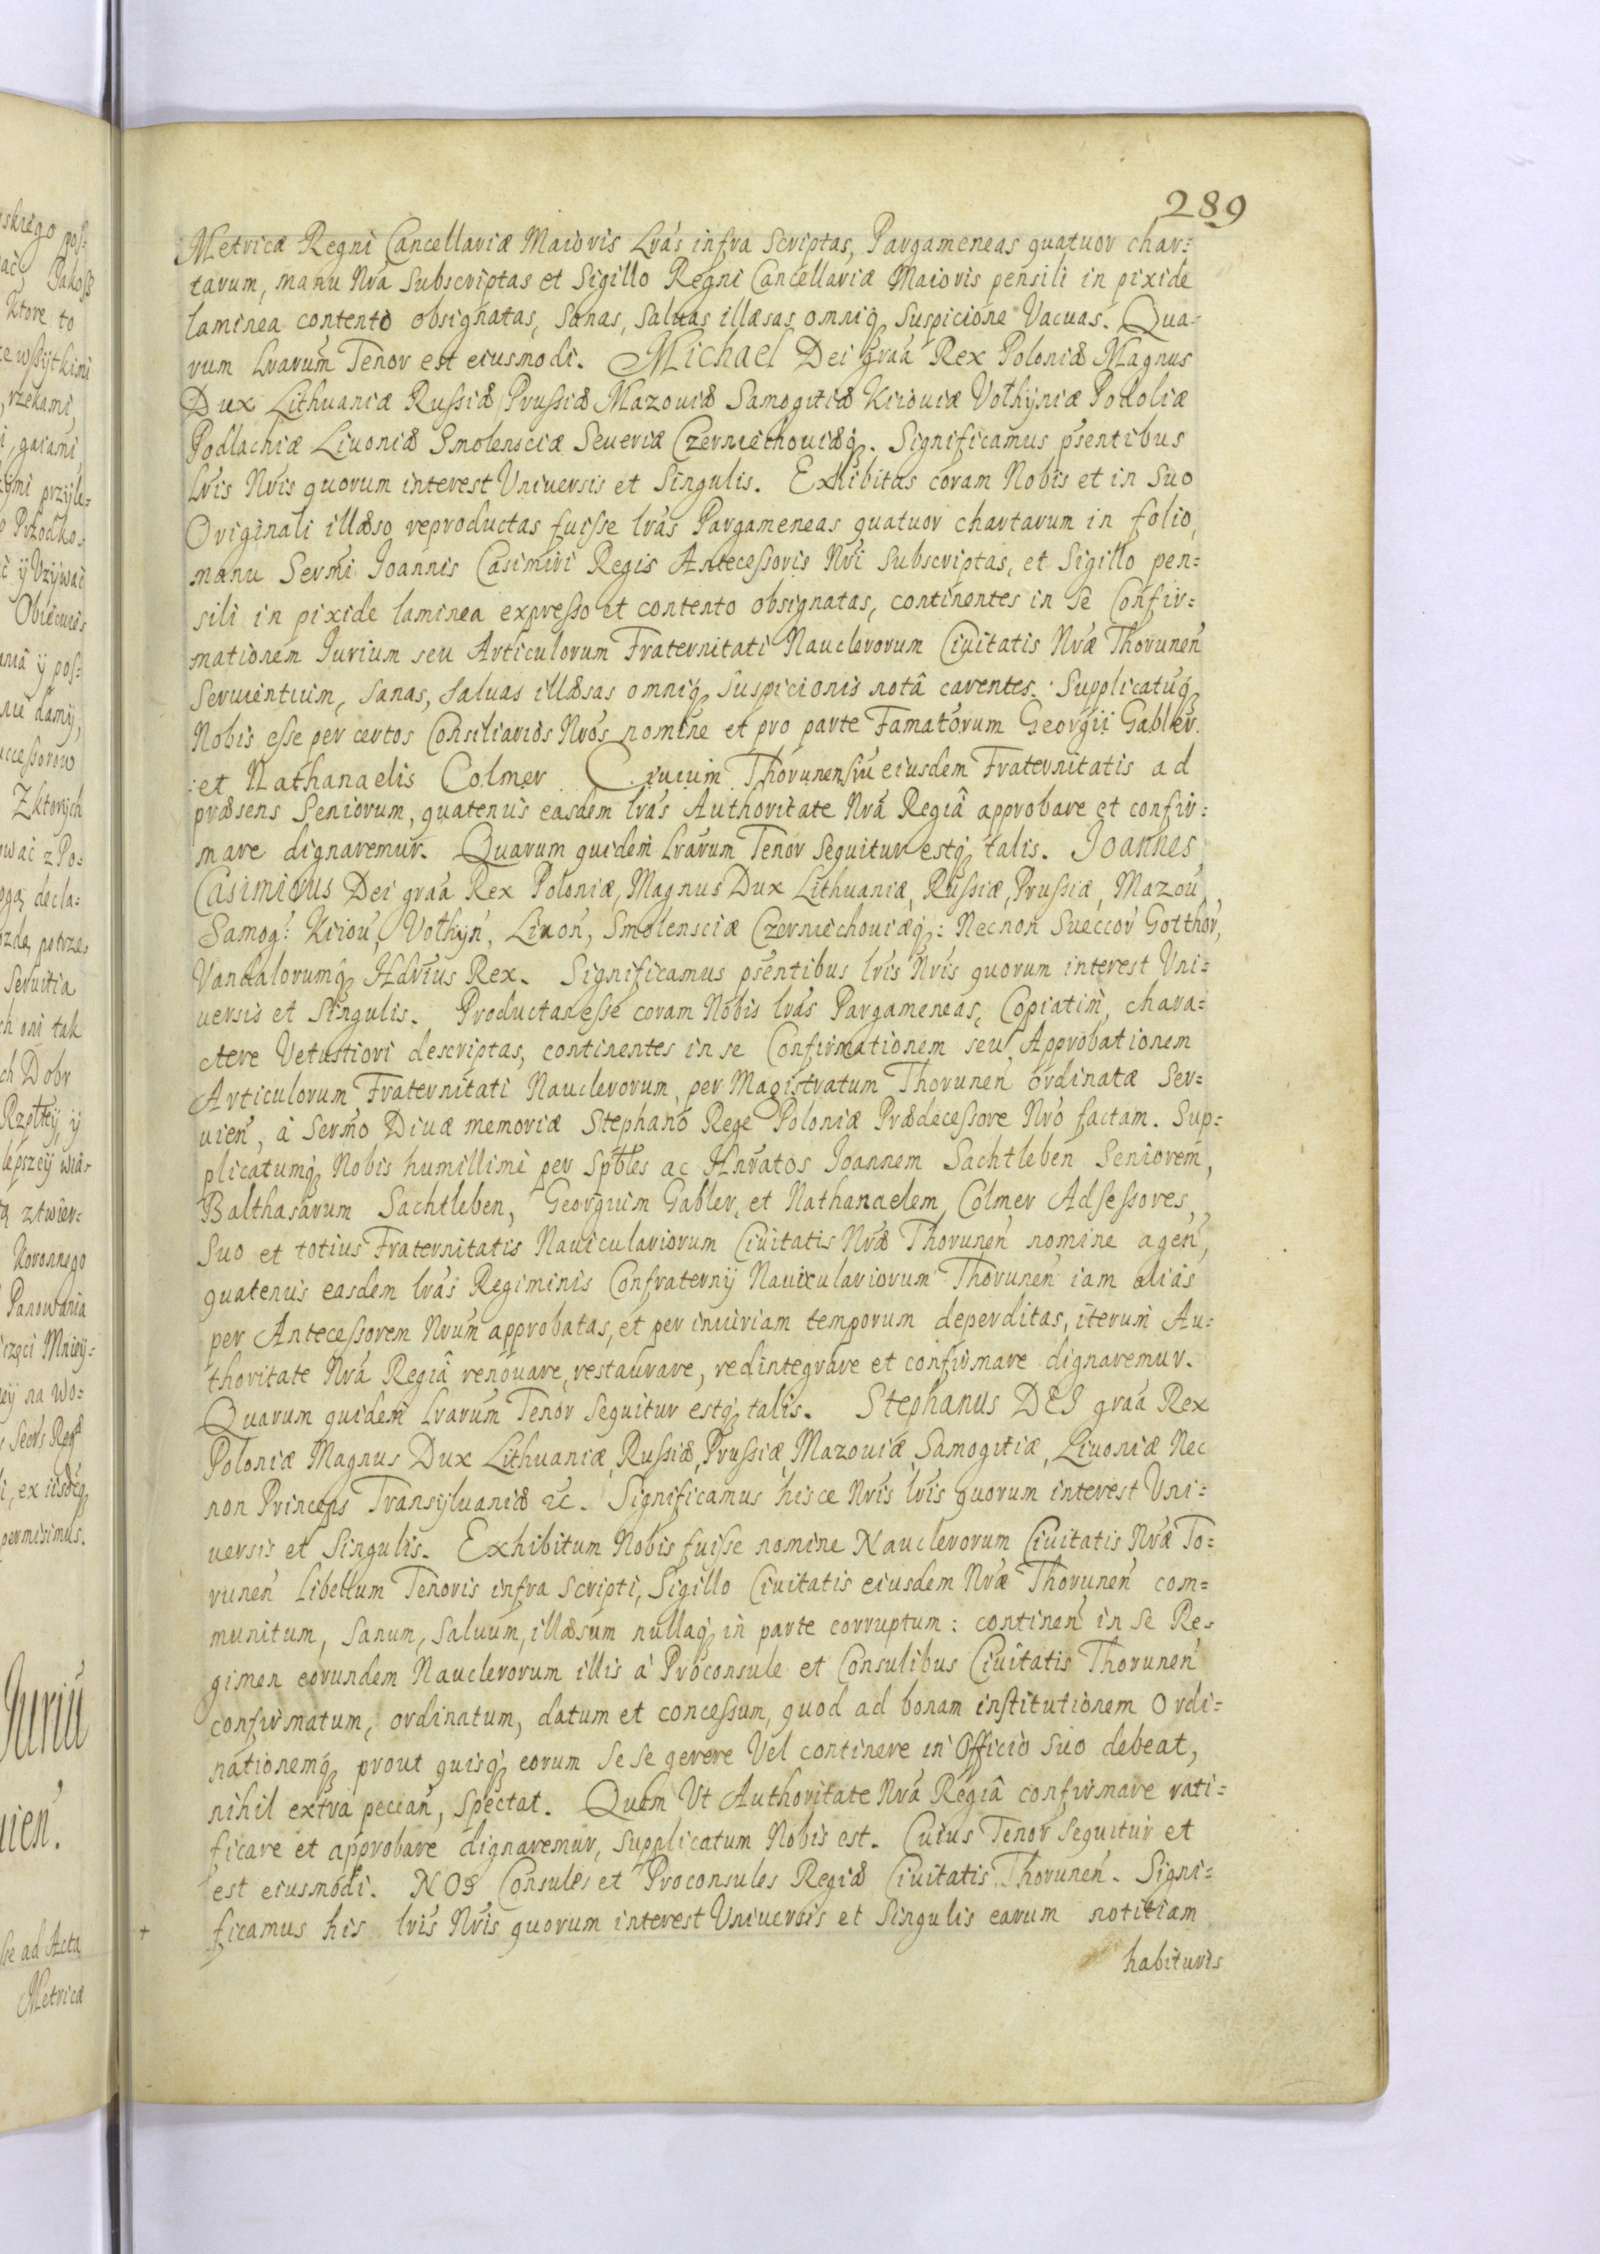 289
Metricæ Regni Cancellariæ Maioris Lrás infra Scriptas, Pargameneas quatuor char=
tarum, manu Nrá Subscriptas et Sigillo Regni Cancellariæ Maioris pensili in pixide
laminea contento obsignatas, Sanas, Saluas illæsas omniq Suspicione Vacuas. Qua=
rum Lrarum Tenor est eiusmodi. Michael Dei graá Rex Poloniæ Magnus
Dux Lithuaniæ Russiæ Prussiæ Mazouiæ Samogitiæ Kiiouiæ Volhyniæ Podoliæ
Podlachiæ Liuoniæ Smolensciæ Seueriæ Czerniechouiæq. Significamus psentibus
Lris Nris quorum interest Vniuersis et Singulis. Exhibitas coram Nobis et in Suo
Originali illæso reproductas fuisse lrás Pargameneas quatuor chartarum in folio,
manu Sermi Joannis Casimiri Regis Antecessoris Nri Subscriptas, et Sigillo pen=
sili in pixide laminea expresso et contento obsignatas, continentes in se Confir=
mationem Jurium seu Articulorum Fraternitati Nauclerorum Ciuitatis Nræ Thorunen
Seruientium, Sanas, Saluas illæsas omniq Suspicionis notâ carentes. Supplicatuq
Nobis esse per certos Consiliarios Nros nomine et pro parte Famatorum Georgii Gabler
:et Nathanaelis Colmer Ciuium Thorunensiu eiusdem Fraternitatis ad
præsens Seniorum, quatenus easdem lrás Authoritate Nrá Regiâ approbare et confir=
mare dignaremur. Quarum quidem Lrarum Tenor Sequitur estq talis. Joannes
Casimirus Dei graá Rex Poloniæ, Magnus Dux Lithuaniæ, Russiæ, Prussiæ, Mazou,
Samog: Kiiou, Volhyn, Liuon, Smolensciæ Czerniechouiæq: Necnon Sueccor Gotthor,
Vandalorumq Hdrius Rex. Significamus psentibus lris Nris quorum interest Vni=
uersis et Singulis. Productas esse coram Nobis lrás Pargameneas, Copiatim, chara=
ctere Vetustiori descriptas, continentes in se Confirmationem seu Approbationem
Articulorum Fraternitati Nauclerorum, per Magistratum Thorunen ordinatæ Ser=
uien, à Sermo Diuæ memoriæ Stephano Rege Poloniæ Prædecessore Nro factam. Sup=
plicatumq Nobis humillimi per Spbles ac Hnratos Joannem Sachtleben Seniorem,
Balthasarum Sachtleben, Georgium Gabler, et Nathanaelem Colmer Adsessores,
Suo et totius Fraternitatis Nauiculariorum Ciuitatis Nræ Thorunen nomine agen,
quatenus easdem lrás Regiminis Confraternij Nauiculariorum Thorunen iam aliàs
per Antecessorem Nrum approbatas, et per iniuriam temporum deperditas, iterum Au=
thoritate Nrá Regiâ renouare, restaurare, redintegrare et confirmare dignaremur.
Quarum quidem Lrarum Tenor Sequitur estq talis. Stephanus DEI graá Rex
Poloniæ Magnus Dux Lithuaniæ, Russiæ, Prussiæ, Mazouiæ, Samogitiæ, Liuoniæ Nec
non Princeps Transyluaniæ &c. Significamus hisce Nris lris quorum interest Vni=
uersis et Singulis. Exhibitum Nobis fuisse nomine Nauclerorum Ciuitatis Nræ To=
runen Libellum Tenoris infra Scripti, Sigillo Ciuitatis eiusdem Nræ Thorunen com=
munitum, Sanum, Saluum, illæsum nullaq in parte corruptum: continen in se Re=
gimen eorundem Nauclerorum illis à Proconsule et Consulibus Ciuitatis Thorunen
confirmatum, ordinatum, datum et concessum, quod ad bonam institutionem Ordi=
nationemq prout quisq eorum Se se gerere Vel continere in Officio Suo debeat,
nihil extra peccan, Spectat. Quem Vt Authoritate Nrá Regiâ confirmare rati=
ficare et approbare dignaremur, Supplicatum Nobis est. Cuius Tenor Sequitur et
est eiusmodi. NOS Consules et Proconsules Regiæ Ciuitatis Thorunen. Signi=
ficamus his lris Nris quorum interest Vniuersis et Singulis earum notitiam
habituris